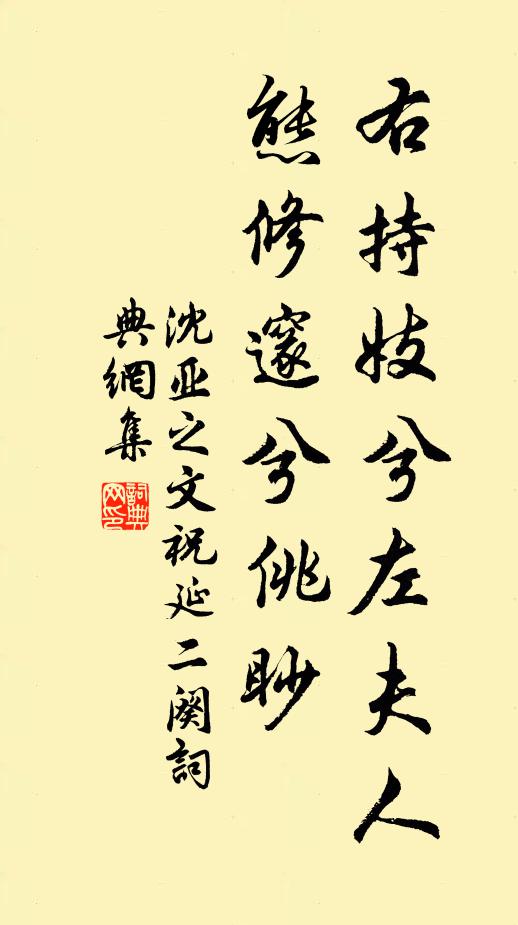 右持妓兮左夫人
態修邃兮佻眇
沈亚之文祝延二阕詞
典網集
詞典網印